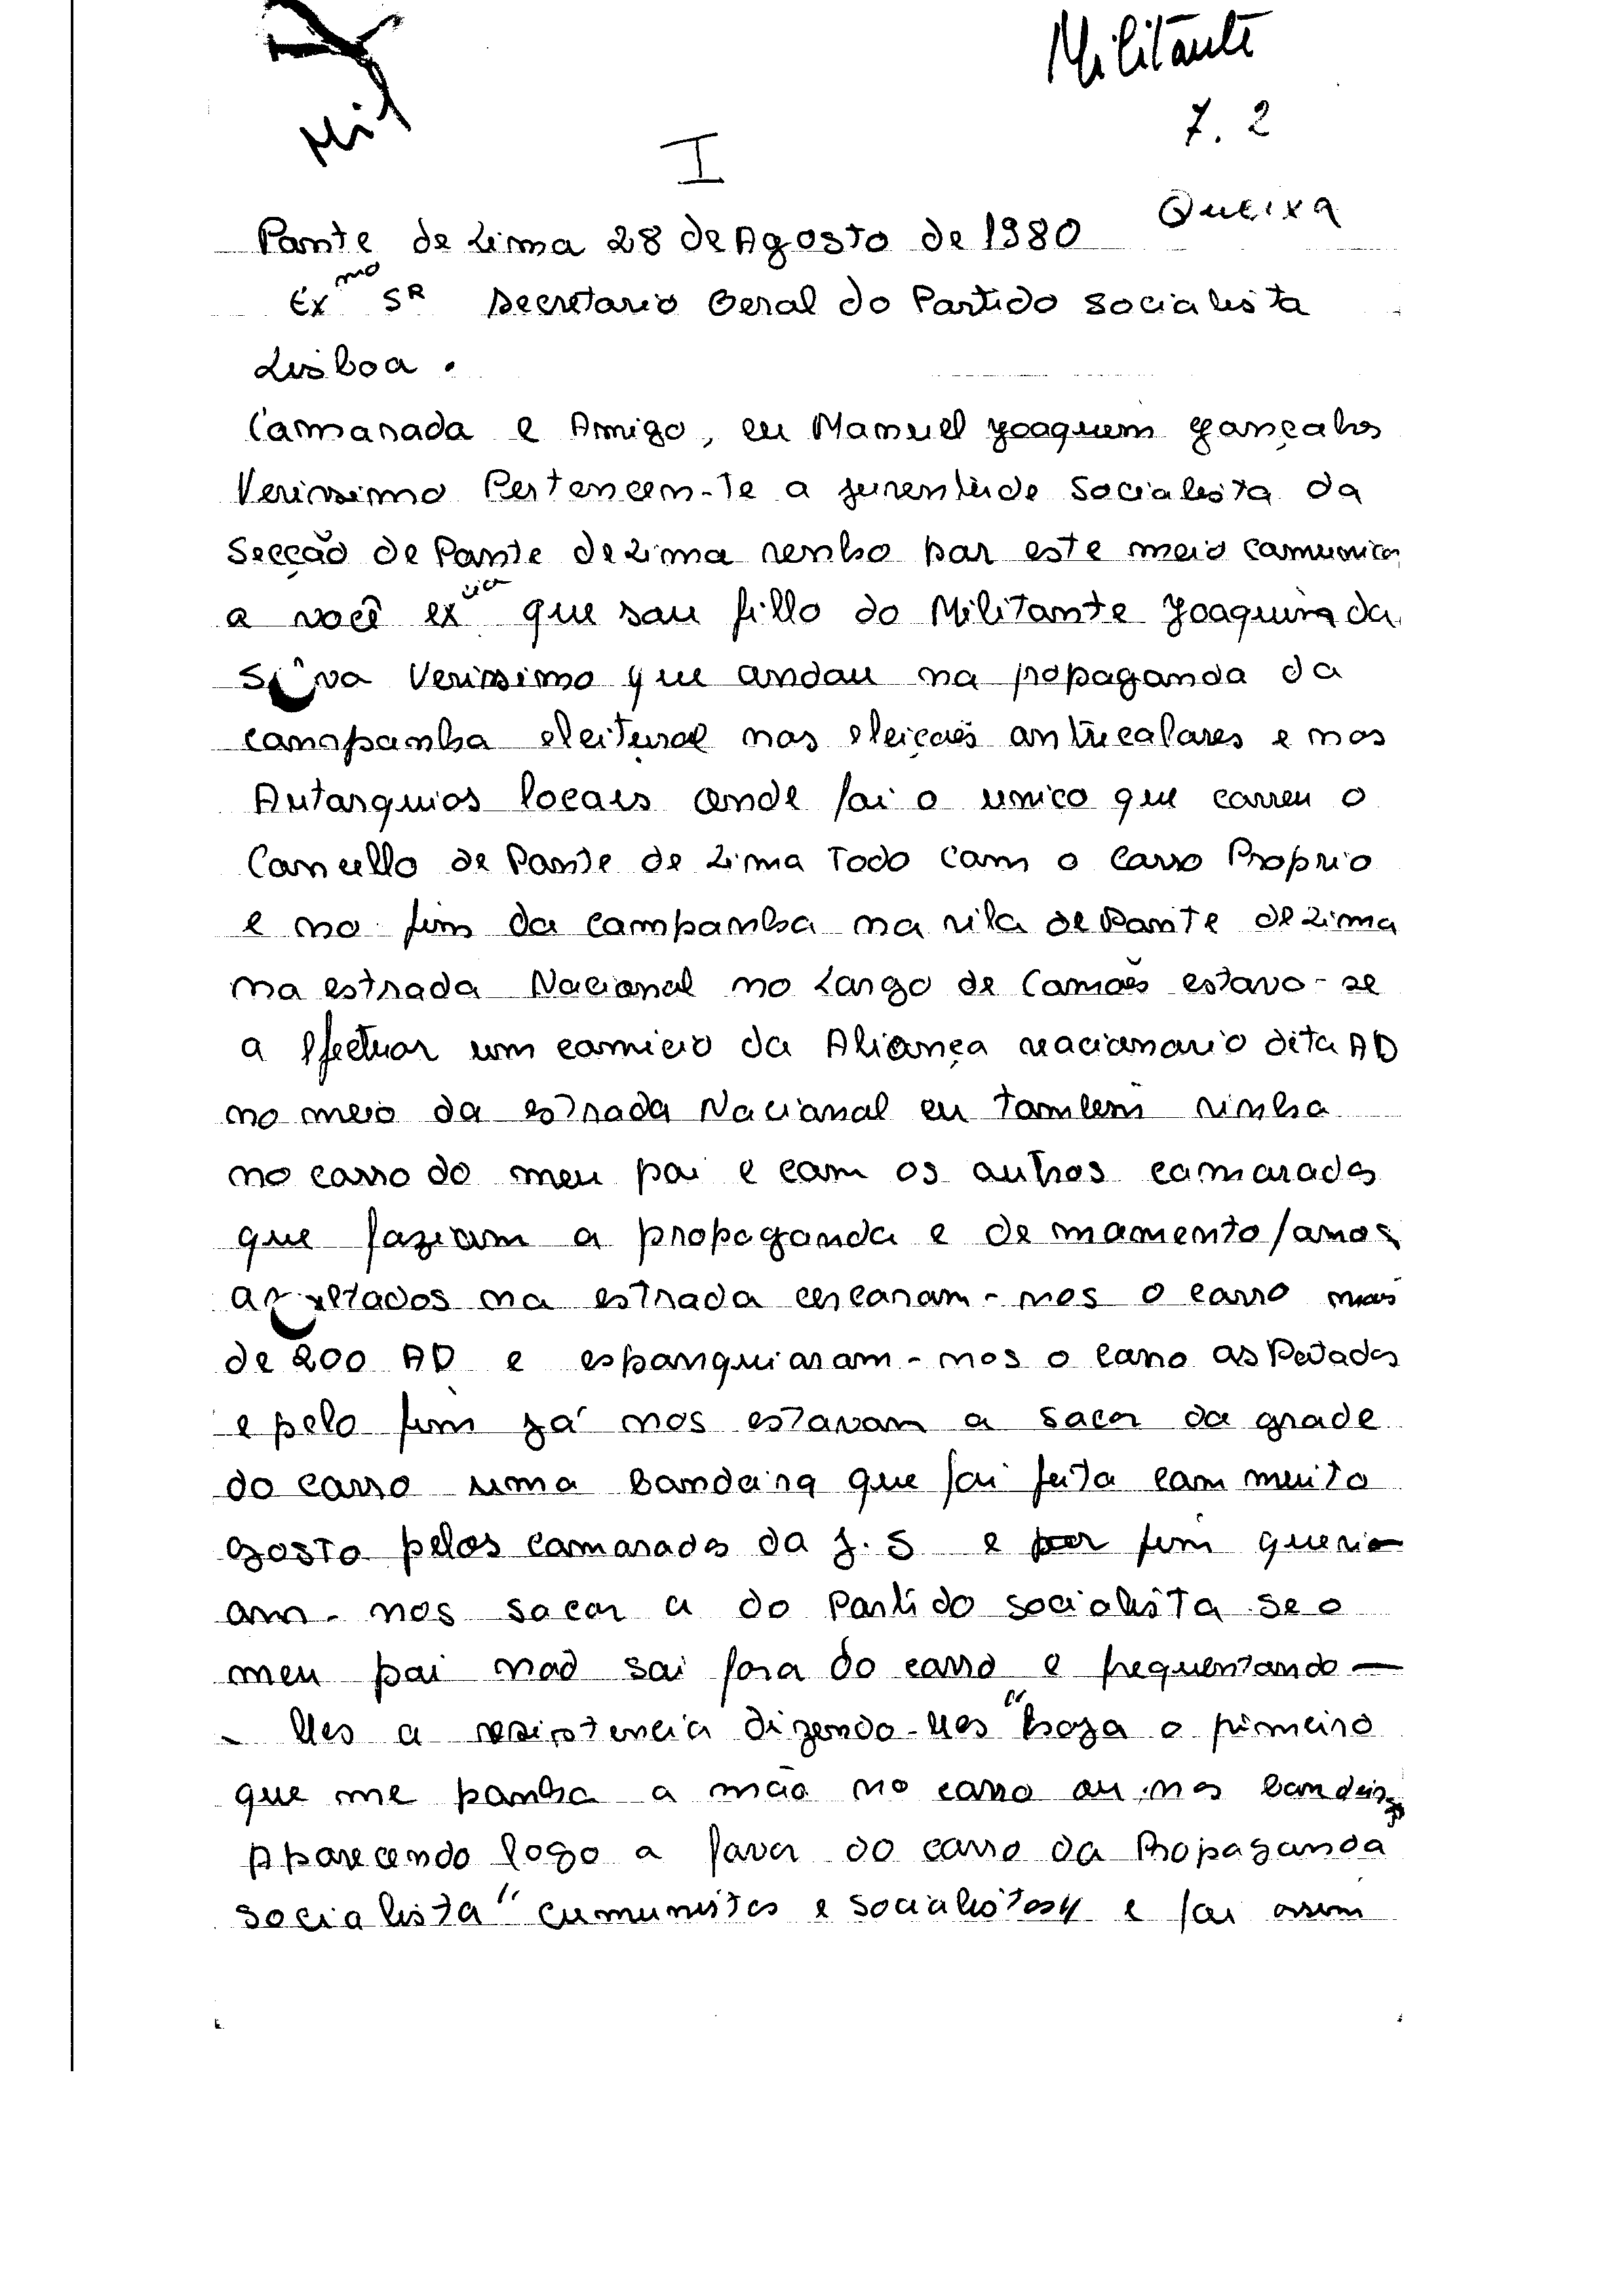 Militante
Mil
7.2
I
Queixa
Ponte de Lima 28 de Agosto de 1980
Exmo SR Secretario Geral do Partido Socialista
Lisboa.
Camarada e Amigo, eu Manuel Joaquim Gonçalves
Verissimo Pertencen-te a juventude Socialista da
Secção de Ponte de Lima venho por este meio comunicar
a você exvia que sou fillo do Militante Joaquim da
Silva Verissimo que andou na propaganda da
campanha eleitural nas eleiçoẽs e nas
Autarquias locais onde foi o unico que correu o
Concello de Ponte de Lima Todo com o carro Proprio
e no fim da campanha na vila de Ponte de Lima
na estrada Nacional no Largo de Camoẽs estavo-se
a efectuar um comicio da Aliança reacionario dita AD
no meio da estrada Nacional eu tambem vinha
no carro do meu pai e com os outros camaradas
que faziam a propaganda e de momento fomos
na estrada cercaram-nos o carro mais
de 200 AD e espanquiaram-nos o carro as Patadas
e pelo fim já nos estavam a sacar da grade
do carro uma bandeira que foi feita com muito
gosto pelos camaradas da J.S e por fim queri-
am-nos sacar a do Partido socialista se o
meu pai nao sai fora do carro e frequentando-
-lles a resistencia dizendo-lles "hoja o primeiro
que me ponha a mão no carro ou nas bandeiras
Aparecendo logo a favor do carro da Propaganda
socialista "cumunistas e socialistas" e foi assim